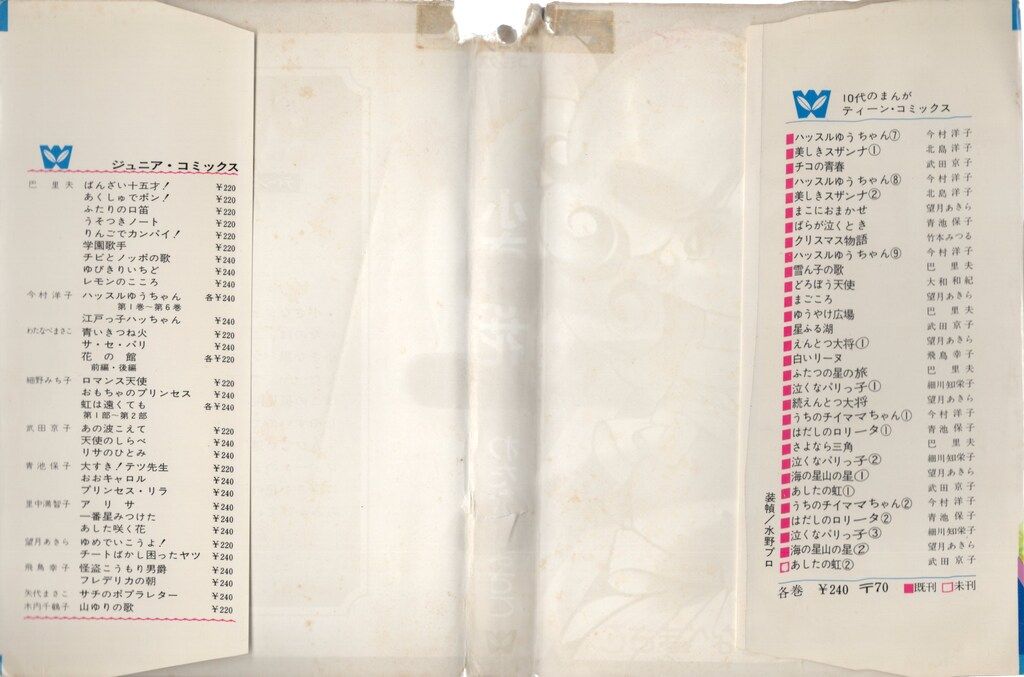 ジュニア・コミックス
巴 里夫 ばんざい十五才! ¥220
あくしゅでポン! ¥220
ふたりの口笛 ¥220
うそつきノート ¥220
りんごでカンパイ! ¥220
学園歌手 ¥220
チビとノッポの歌 ¥240
ゆびきりいちど ¥240
レモンのこころ ¥240
今村洋子 ハッスルゆうちゃん 各¥240
第1巻〜第6巻
江戸っ子ハッちゃん ¥240
わたなべまさこ 青いきつね火 ¥220
サ・セ・パリ ¥240
花の館 各¥220
前編・後編
細野みち子 ロマンス天使 ¥220
おもちゃのプリンセス ¥240
虹は遠くても 各¥240
第1部〜第2部
武田京子 あの波こえて ¥220
天使のしらべ ¥240
リサのひとみ ¥240
青池保子 大すき!テツ先生 ¥220
おおキャロル ¥240
プリンセス・リラ ¥240
里中満智子 アリサ ¥240
一番星みつけた ¥240
あした咲く花 ¥240
望月あきら ゆめでいこうよ! ¥220
チートばかし困ったヤツ ¥240
飛鳥幸子 怪盗こうもり男爵 ¥240
フレデリカの朝 ¥240
矢代まさこ サチのポプラレター ¥240
木内千鶴子 山ゆりの歌 ¥220
10代のまんが
ティーン・コミックス
ハッスルゆうちゃん⑦ 今村洋子
美しきスザンナ① 北島洋子
チコの青春 武田京子
ハッスルゆうちゃん⑧ 今村洋子
美しきスザンナ② 北島洋子
まこにおまかせ 望月あきら
ばらが泣くとき 青池保子
クリスマス物語 竹本みつる
ハッスルゆうちゃん⑨ 今村洋子
雪ん子の歌 巴里夫
どろぼう天使 大和和紀
まごころ 望月あきら
ゆうやけ広場 巴里夫
星ふる湖 武田京子
えんとつ大将① 望月あきら
白いリーヌ 飛鳥幸子
ふたつの星の旅 巴里夫
泣くなパリっ子① 細川知栄子
続えんとつ大将 望月あきら
うちのチイママちゃん① 今村洋子
はだしのロリータ① 青池保子
さよなら三角 巴里夫
泣くなパリっ子② 細川知栄子
海の星山の星① 望月あきら
あしたの虹① 武田京子
うちのチイママちゃん② 今村洋子
はだしのロリータ② 青池保子
泣くなパリっ子③ 細川知栄子
海の星山の星② 望月あきら
あしたの虹② 武田京子
各巻 ¥240 〒70 既刊 未刊
装幀/水野プロ